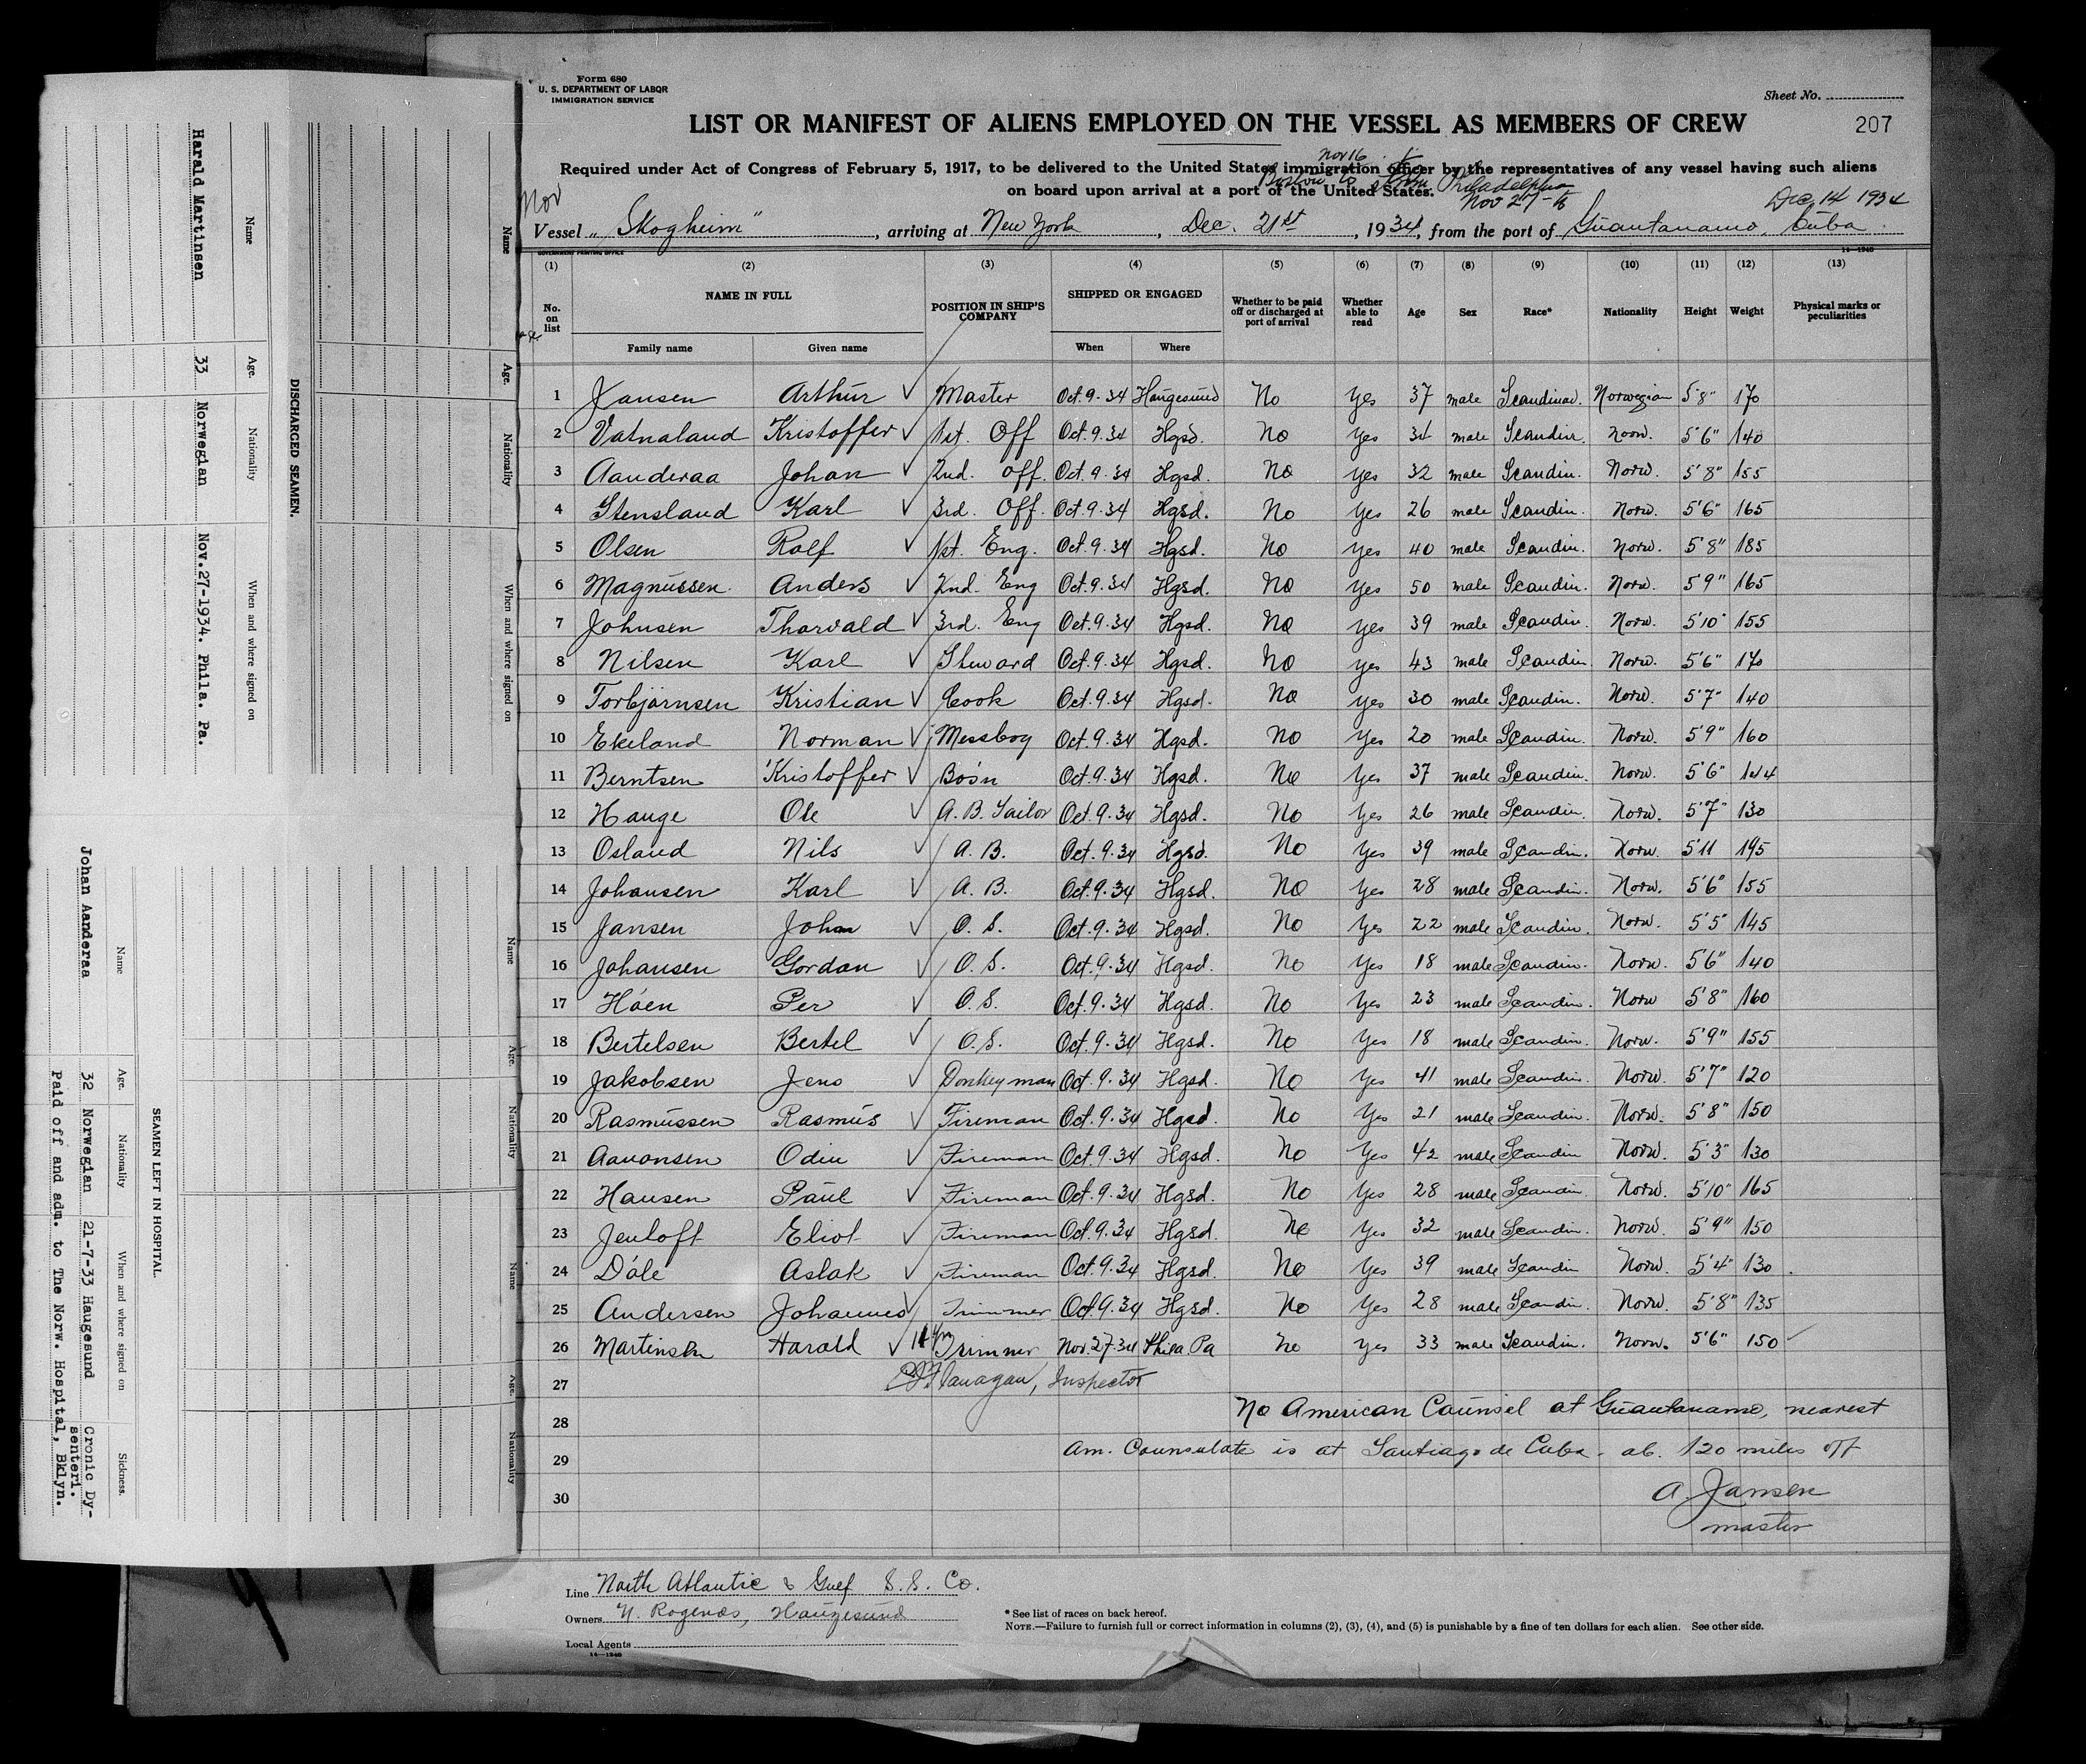 Form 680
U. S. DEPARTMENT OF LABOR
IMMIGRATION SERVICE
Sheet No.
LIST OR MANIFEST OF ALIENS EMPLOYED ON THE VESSEL AS MEMBERS OF CREW
207
Required under Act of Congress of February 5, 1917, to be delivered to the United States immigration officer by the representatives of any vessel having such aliens
on board upon arrival at a port of the United States.
Nov 16
Boston
Philadelphia
Nov 27-
Dec. 14 1934
Nov
Vessel "Skogheim", arriving at New York, Dec. 21st, 1934, from the port of Guantanamo, Cuba
GOVERNMENT PRINTING OFFICE
14—1240
(1) (2) (3) (4) (5) (6) (7) (8) (9) (10) (11) (12) (13)
No. on list NAME IN FULL POSITION IN SHIP'S COMPANY SHIPPED OR ENGAGED Whether to be paid off or discharged at port of arrival Whether able to read Age Sex Race* Nationality Height Weight Physical marks or peculiarities
Family name Given name When Where
1 Jansen Arthur ✓ Master Oct. 9-34 Haugesund No Yes 37 male Scandinav. Norwegian 5'8" 170
2 Vatnaland Kristoffer ✓ 1st. Off Oct. 9.34 Hgsd. No Yes 34 male Scandin. Norw. 5'6" 140
3 Aanderaa Johan ✓ 2nd. Off. Oct. 9.34 Hgsd. No Yes 32 male Scandin. Norw. 5'8" 155
4 Stensland Karl ✓ 3rd. Off. Oct. 9.34 Hgsd. No Yes 26 male Scandin. Norw. 5'6" 165
5 Olsen Rolf ✓ 1st. Eng. Oct. 9.34 Hgsd. No Yes 40 male Scandin. Norw. 5'8" 185
6 Magnussen Anders ✓ 2nd. Eng Oct. 9.34 Hgsd. No Yes 50 male Scandin. Norw. 5'9" 165
7 Johnsen Thorvald ✓ 3rd. Eng Oct. 9.34 Hgsd. No Yes 39 male Scandin. Norw. 5'10" 155
8 Nilsen Karl ✓ Steward Oct. 9.34 Hgsd. No Yes 43 male Scandin. Norw. 5'6" 170
9 Torbjørnsen Kristian ✓ Cook Oct. 9.34 Hgsd. No Yes 30 male Scandin. Norw. 5'7" 140
10 Ekeland Norman ✓ Messboy Oct. 9.34 Hgsd. No Yes 20 male Scandin. Norw. 5'9" 160
11 Berntsen Kristoffer ✓ Bos'n Oct. 9.34 Hgsd. No Yes 37 male Scandin. Norw. 5'6" 144
12 Hauge Ole ✓ A. B. Sailor Oct. 9.34 Hgsd. No Yes 26 male Scandin. Norw. 5'7" 130
13 Osland Nils ✓ A. B. Oct. 9.34 Hgsd. No Yes 39 male Scandin. Norw. 5'11 195
14 Johansen Karl ✓ A. B. Oct. 9.34 Hgsd. No Yes 28 male Scandin. Norw. 5'6" 155
15 Jansen John ✓ O. S. Oct. 9.34 Hgsd. No Yes 22 male Scandin. Norw. 5'5" 145
16 Johansen Gordan ✓ O. S. Oct. 9.34 Hgsd. No Yes 18 male Scandin. Norw. 5'6" 140
17 Håen Per ✓ O. S. Oct. 9.34 Hgsd. No Yes 23 male Scandin. Norw 5'8" 160
18 Bertelsen Bertel ✓ O. S. Oct. 9.34 Hgsd. No Yes 18 male Scandin. Norw. 5'9" 155
19 Jakobsen Jens ✓ Donkeyman Oct. 9.34 Hgsd. No Yes 41 male Scandin. Norw. 5'7" 120
20 Rasmussen Rasmus ✓ Fireman Oct. 9.34 Hgsd. No Yes 21 male Scandin. Norw. 5'8" 150
21 Aaronsen Odin ✓ Fireman Oct. 9.34 Hgsd. No Yes 42 male Scandin Norw. 5'3" 130
22 Hansen Paul ✓ Fireman Oct. 9.34 Hgsd. No Yes 28 male Scandin. Norw. 5'10" 165
23 Jentoft Eliot ✓ Fireman Oct. 9.34 Hgsd. No Yes 32 male Scandin. Norw. 5'9" 150
24 Dåle Aslak ✓ Fireman Oct. 9.34 Hgsd. No Yes 39 male Scandin Norw. 5'4" 130
25 Andersen Johannes ✓ Trimmer Oct 9.34 Hgsd. No Yes 28 male Scandin. Norw. 5'8" 135
26 Martinsen Harald ✓ Trimmer Nov. 27-34 Phila. Pa No Yes 33 male Scandin. Norw. 5'6" 150
27 Flanagan, Inspector
28 No American Counsel at Guantanamo, nearest
29 Am. Counsulate is at Santiago de Cuba - ab. 120 miles off
30 A. Jansen
master
Line North Atlantic & Gulf S. S. Co.
Owners N. Rogenæs, Haugesund
Local Agents
14—1240
* See list of races on back hereof.
NOTE.—Failure to furnish full or correct information in columns (2), (3), (4), and (5) is punishable by a fine of ten dollars for each alien. See other side.
DISCHARGED SEAMEN.
Name Age. Nationality When and where signed on
Harald Martinsen 33 Norwegian Nov.27-1934. Phila. Pa.
Name Age. Nationality When and where signed on
SEAMEN LEFT IN HOSPITAL
Name Age. Nationality When and where signed on Sickness.
Johan Aanderaa 32 Norwegian 21-7-33 Haugesund Cronic Dy-
senteri.
Paid off and adm. to The Norw. Hospital, Bklyn.
Name Age. Nationality
Name Age. Nationality